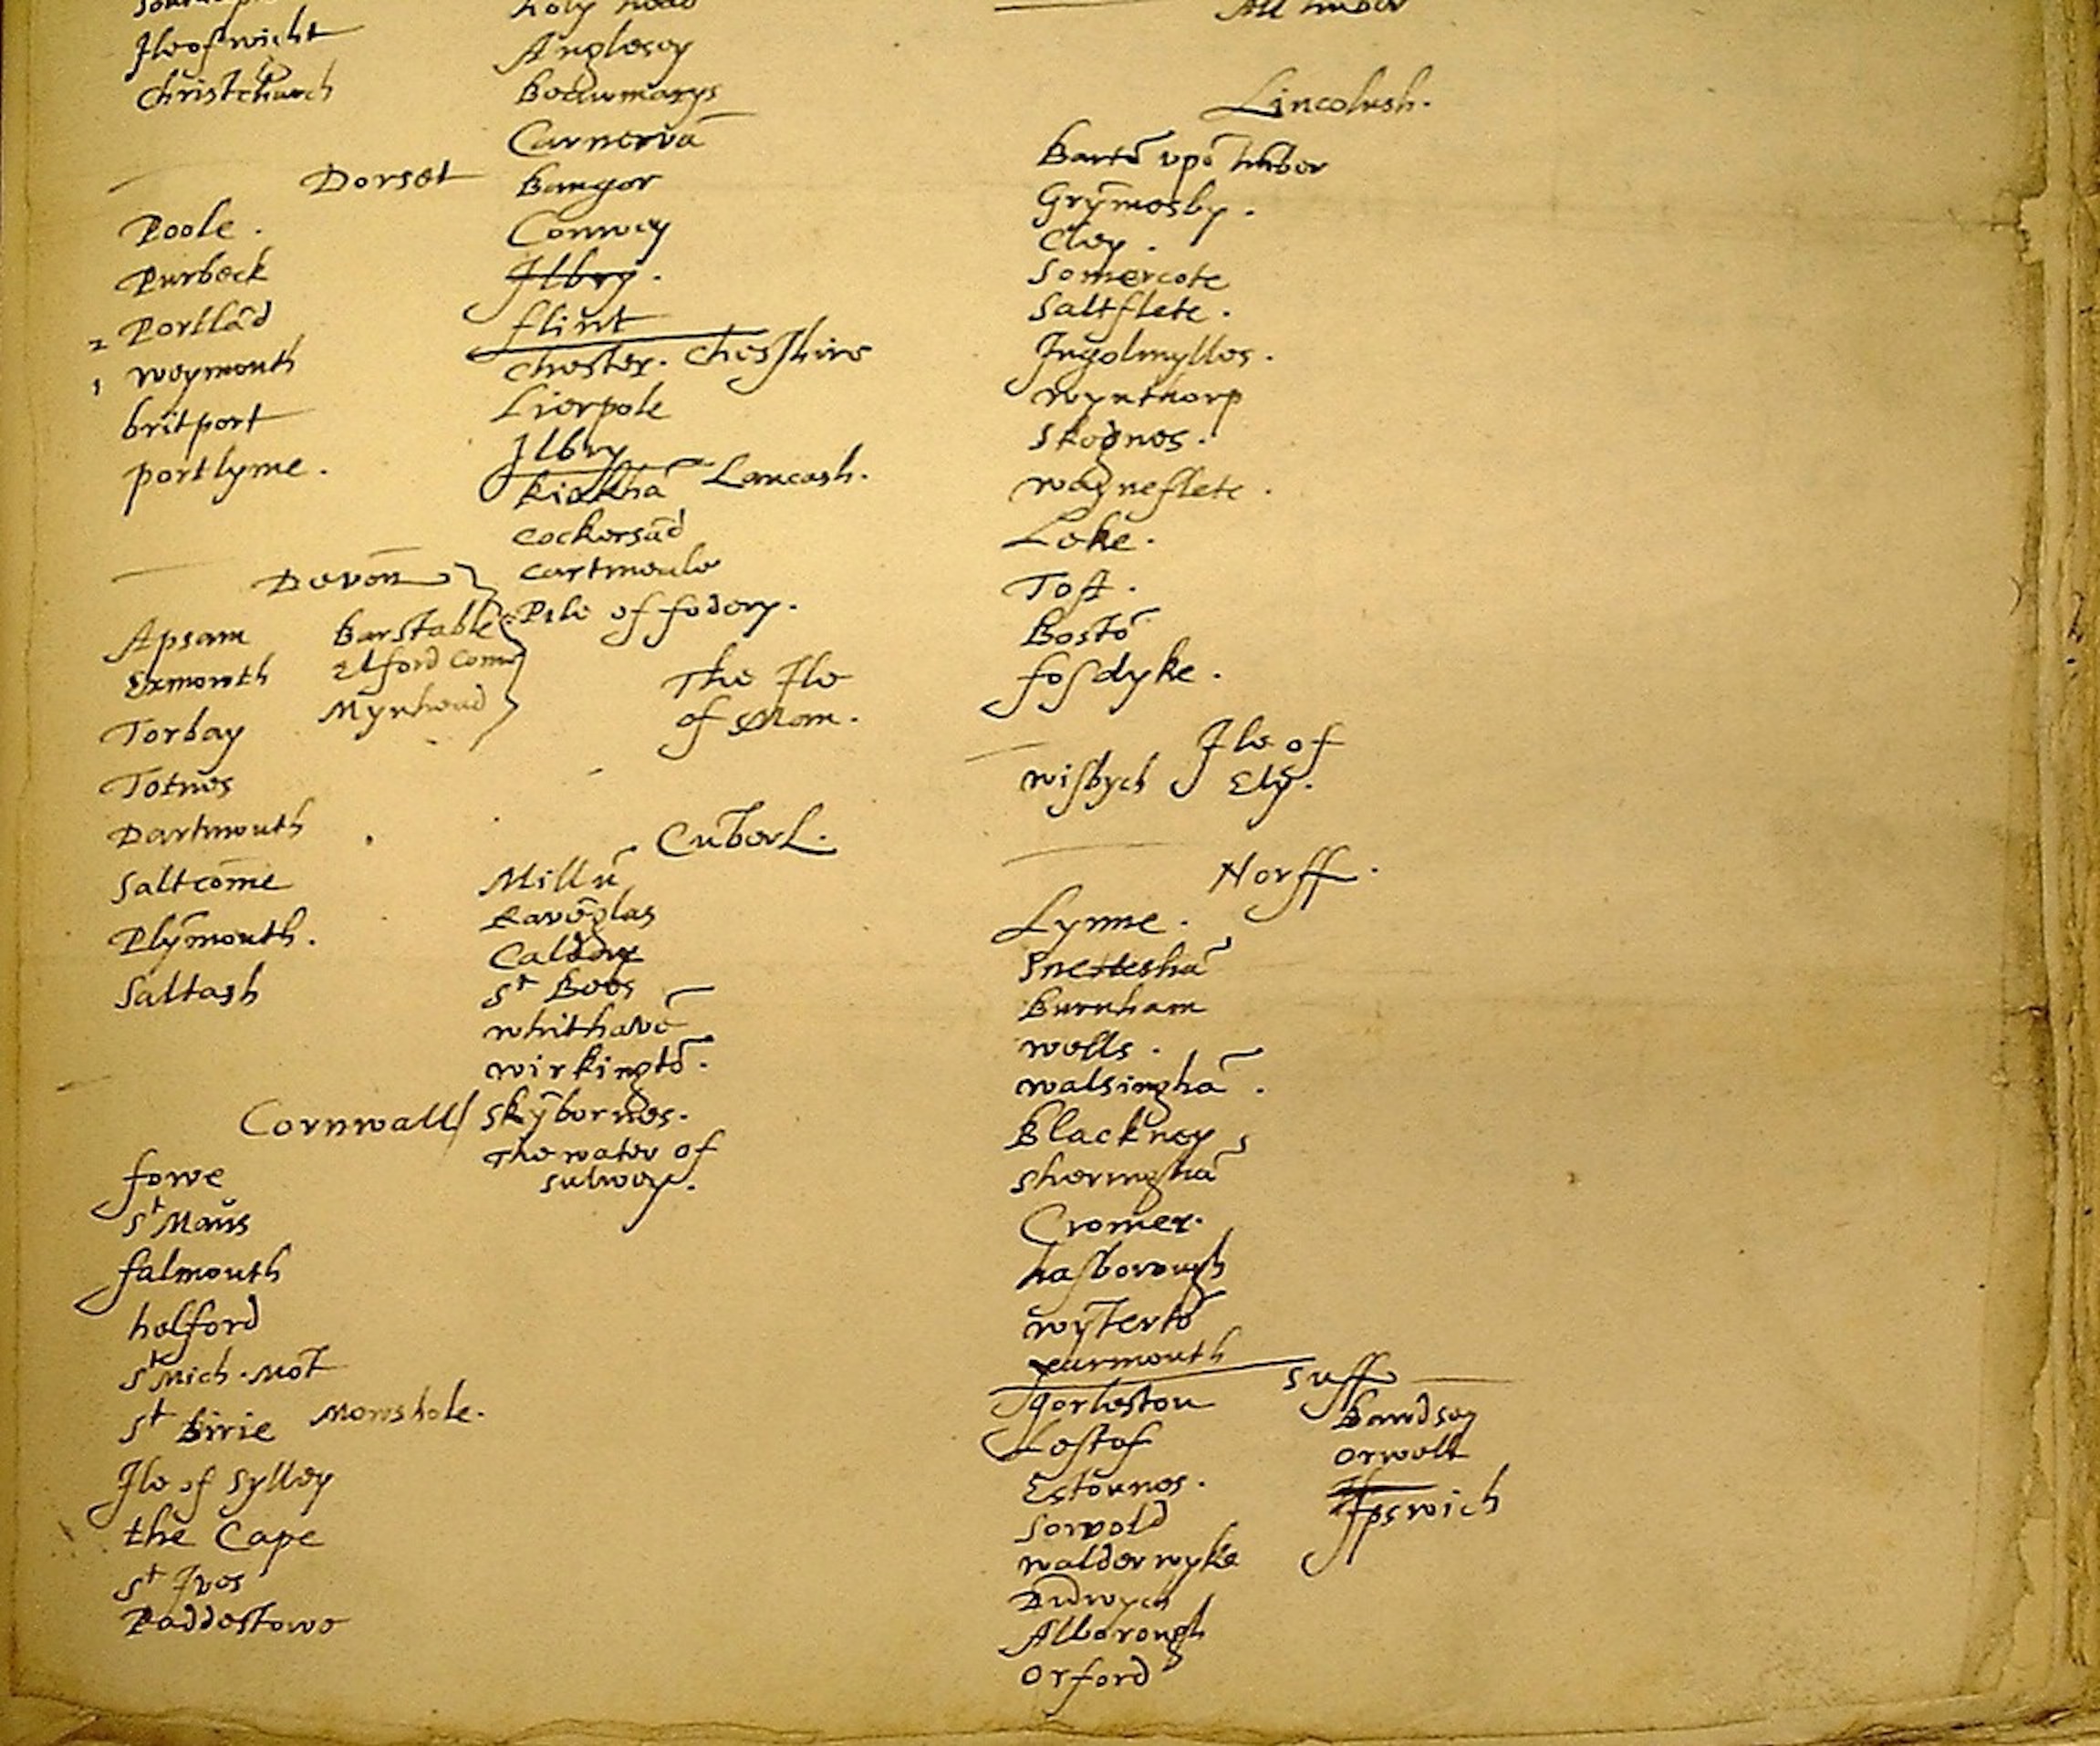 Ile of wicht
Christchurch
Dorset
Poole .
Purbeck
2 Portlād
1 weymouth
britport
portlyme .
Devoñ
Apsam
Exmouth
Torbay
Totnes
Dartmouth
Saltcōme
Plȳmouth .
Saltash
Barstable
Ilford Com
Mynhead
Cornwall
fowe
St Maws
falmouth
helford
St Mich . Mōt
St Birie Mowshole .
Ile of Sylley
the Cape
St Ives
Paddestowe
holy head
Anglesey
Beawmarys
Carnervā
Bangor
Conwey
Ilbry .
flint
Chester . Chesshire
Lierpole
Ilbry
kirkhā Lancash .
Cockersād
Cartmeale
Pile of fodery .
The Ile
of Man .
Cūberl .
Millū
Ravēglas
Calder
St Bees
whithavē
wirkingtō .
Skȳbornes .
The water of
Sulwey .
Lincolnsh .
Bartō vpō hūber
Grȳmesby .
Cley .
Somercote
Saltflete .
Ingolmylles .
wynthorp
Skegnes .
wayneflete .
Leke .
Toft .
Bostō
fosdyke .
Ile of
wisbych Ely .
Norff .
Lynne .
Snetteshā
Burnham
wells .
walsinghā .
Blackney
Sheringhā
Cromer .
hasborough
wȳtertō
yarmouth
Suff
gorleston
Lestof
Estōnnes .
Sowold
walderwyke
Dūwych
Alborough
Orford
Bawdsey
Orwell
Ipswich